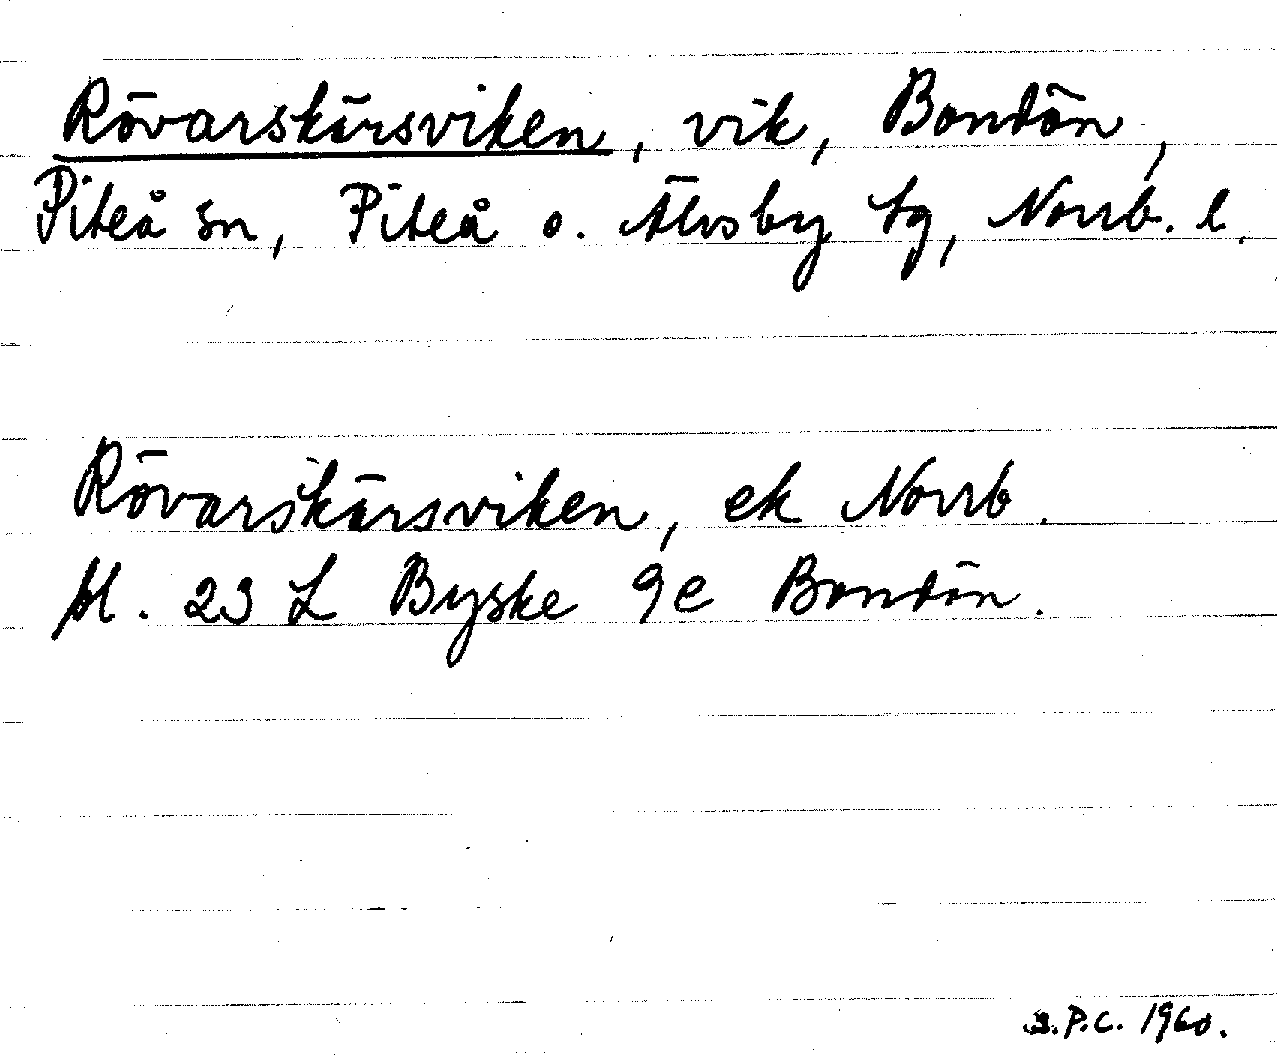 Rövarskärsviken, vik, Bondön,
Piteå sn, Piteå o. Älvsby tg, Norrb. l.
Rövarskärsviken, ek Norrb.
bl. 23 L Byske 9e Bondön.
P.C. 1960.